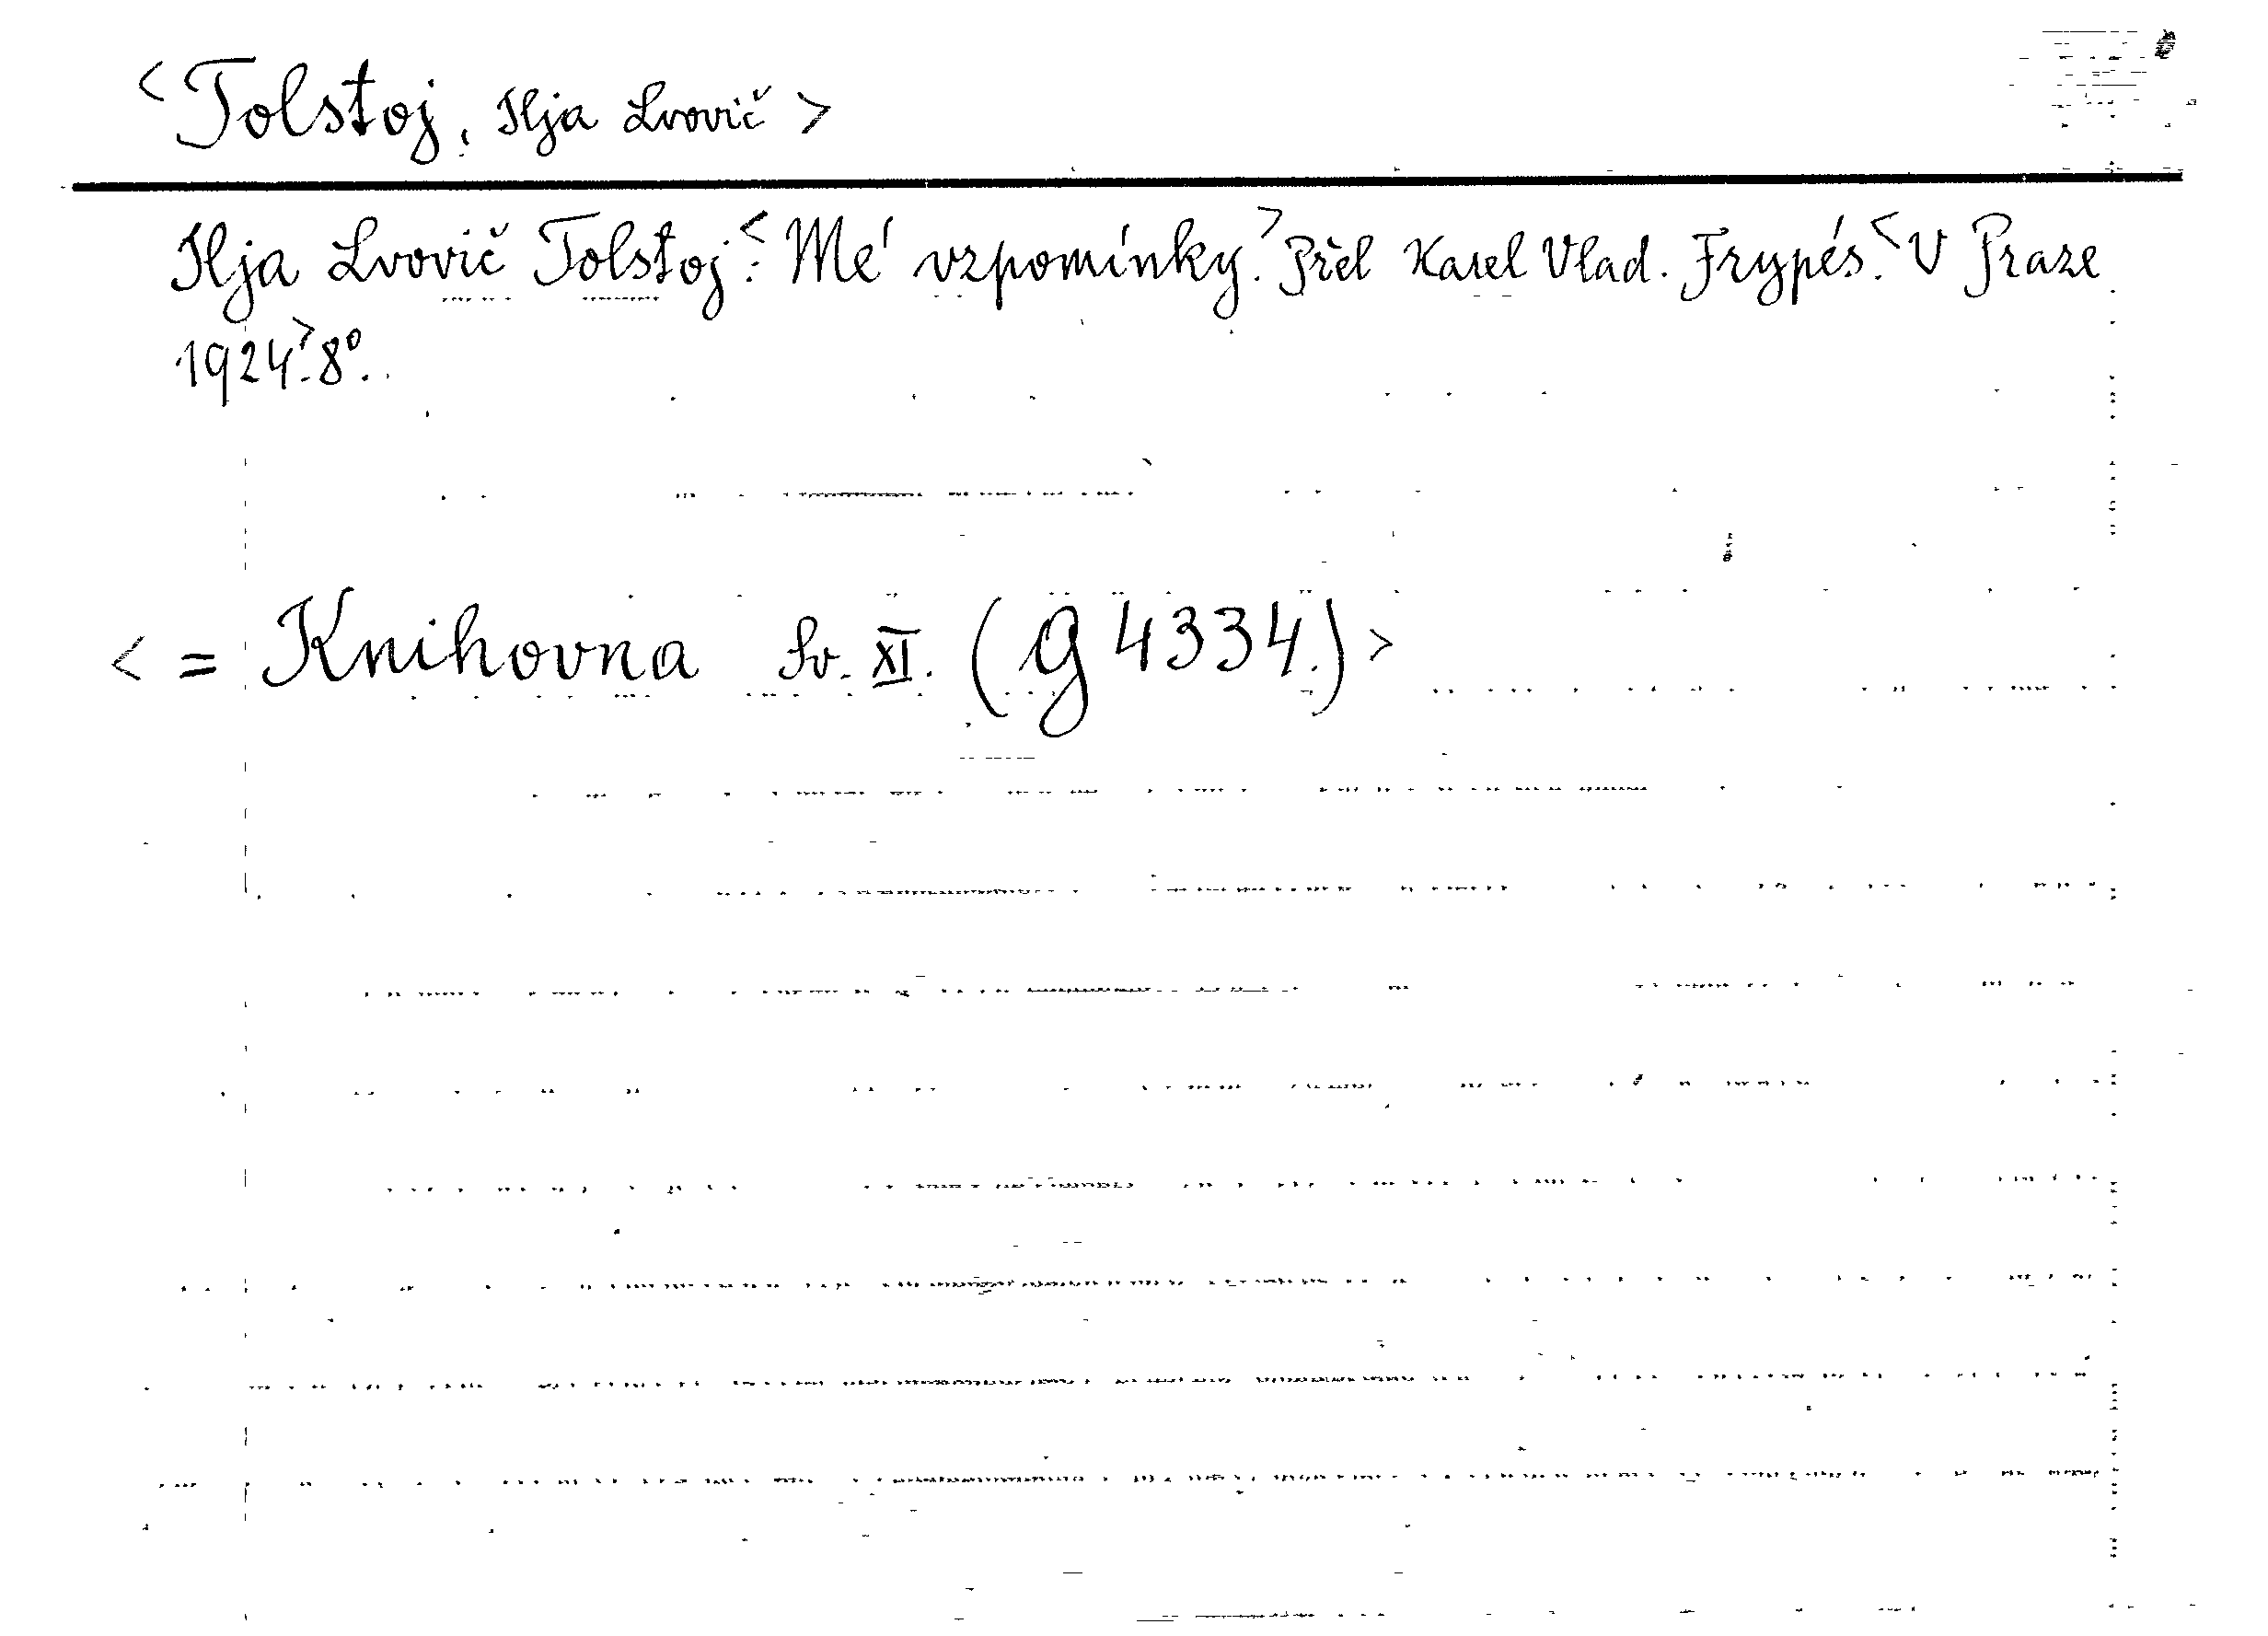 <Tolstoj, Ilja Lvovič>
Ilja Lvovič Tolstoj<: Mé vzpomínky.> Přel Karel Vlad. Frypés.< V Praze
1924>. 8°.
< = Knihovna Sv. XI. (G 4334.) >